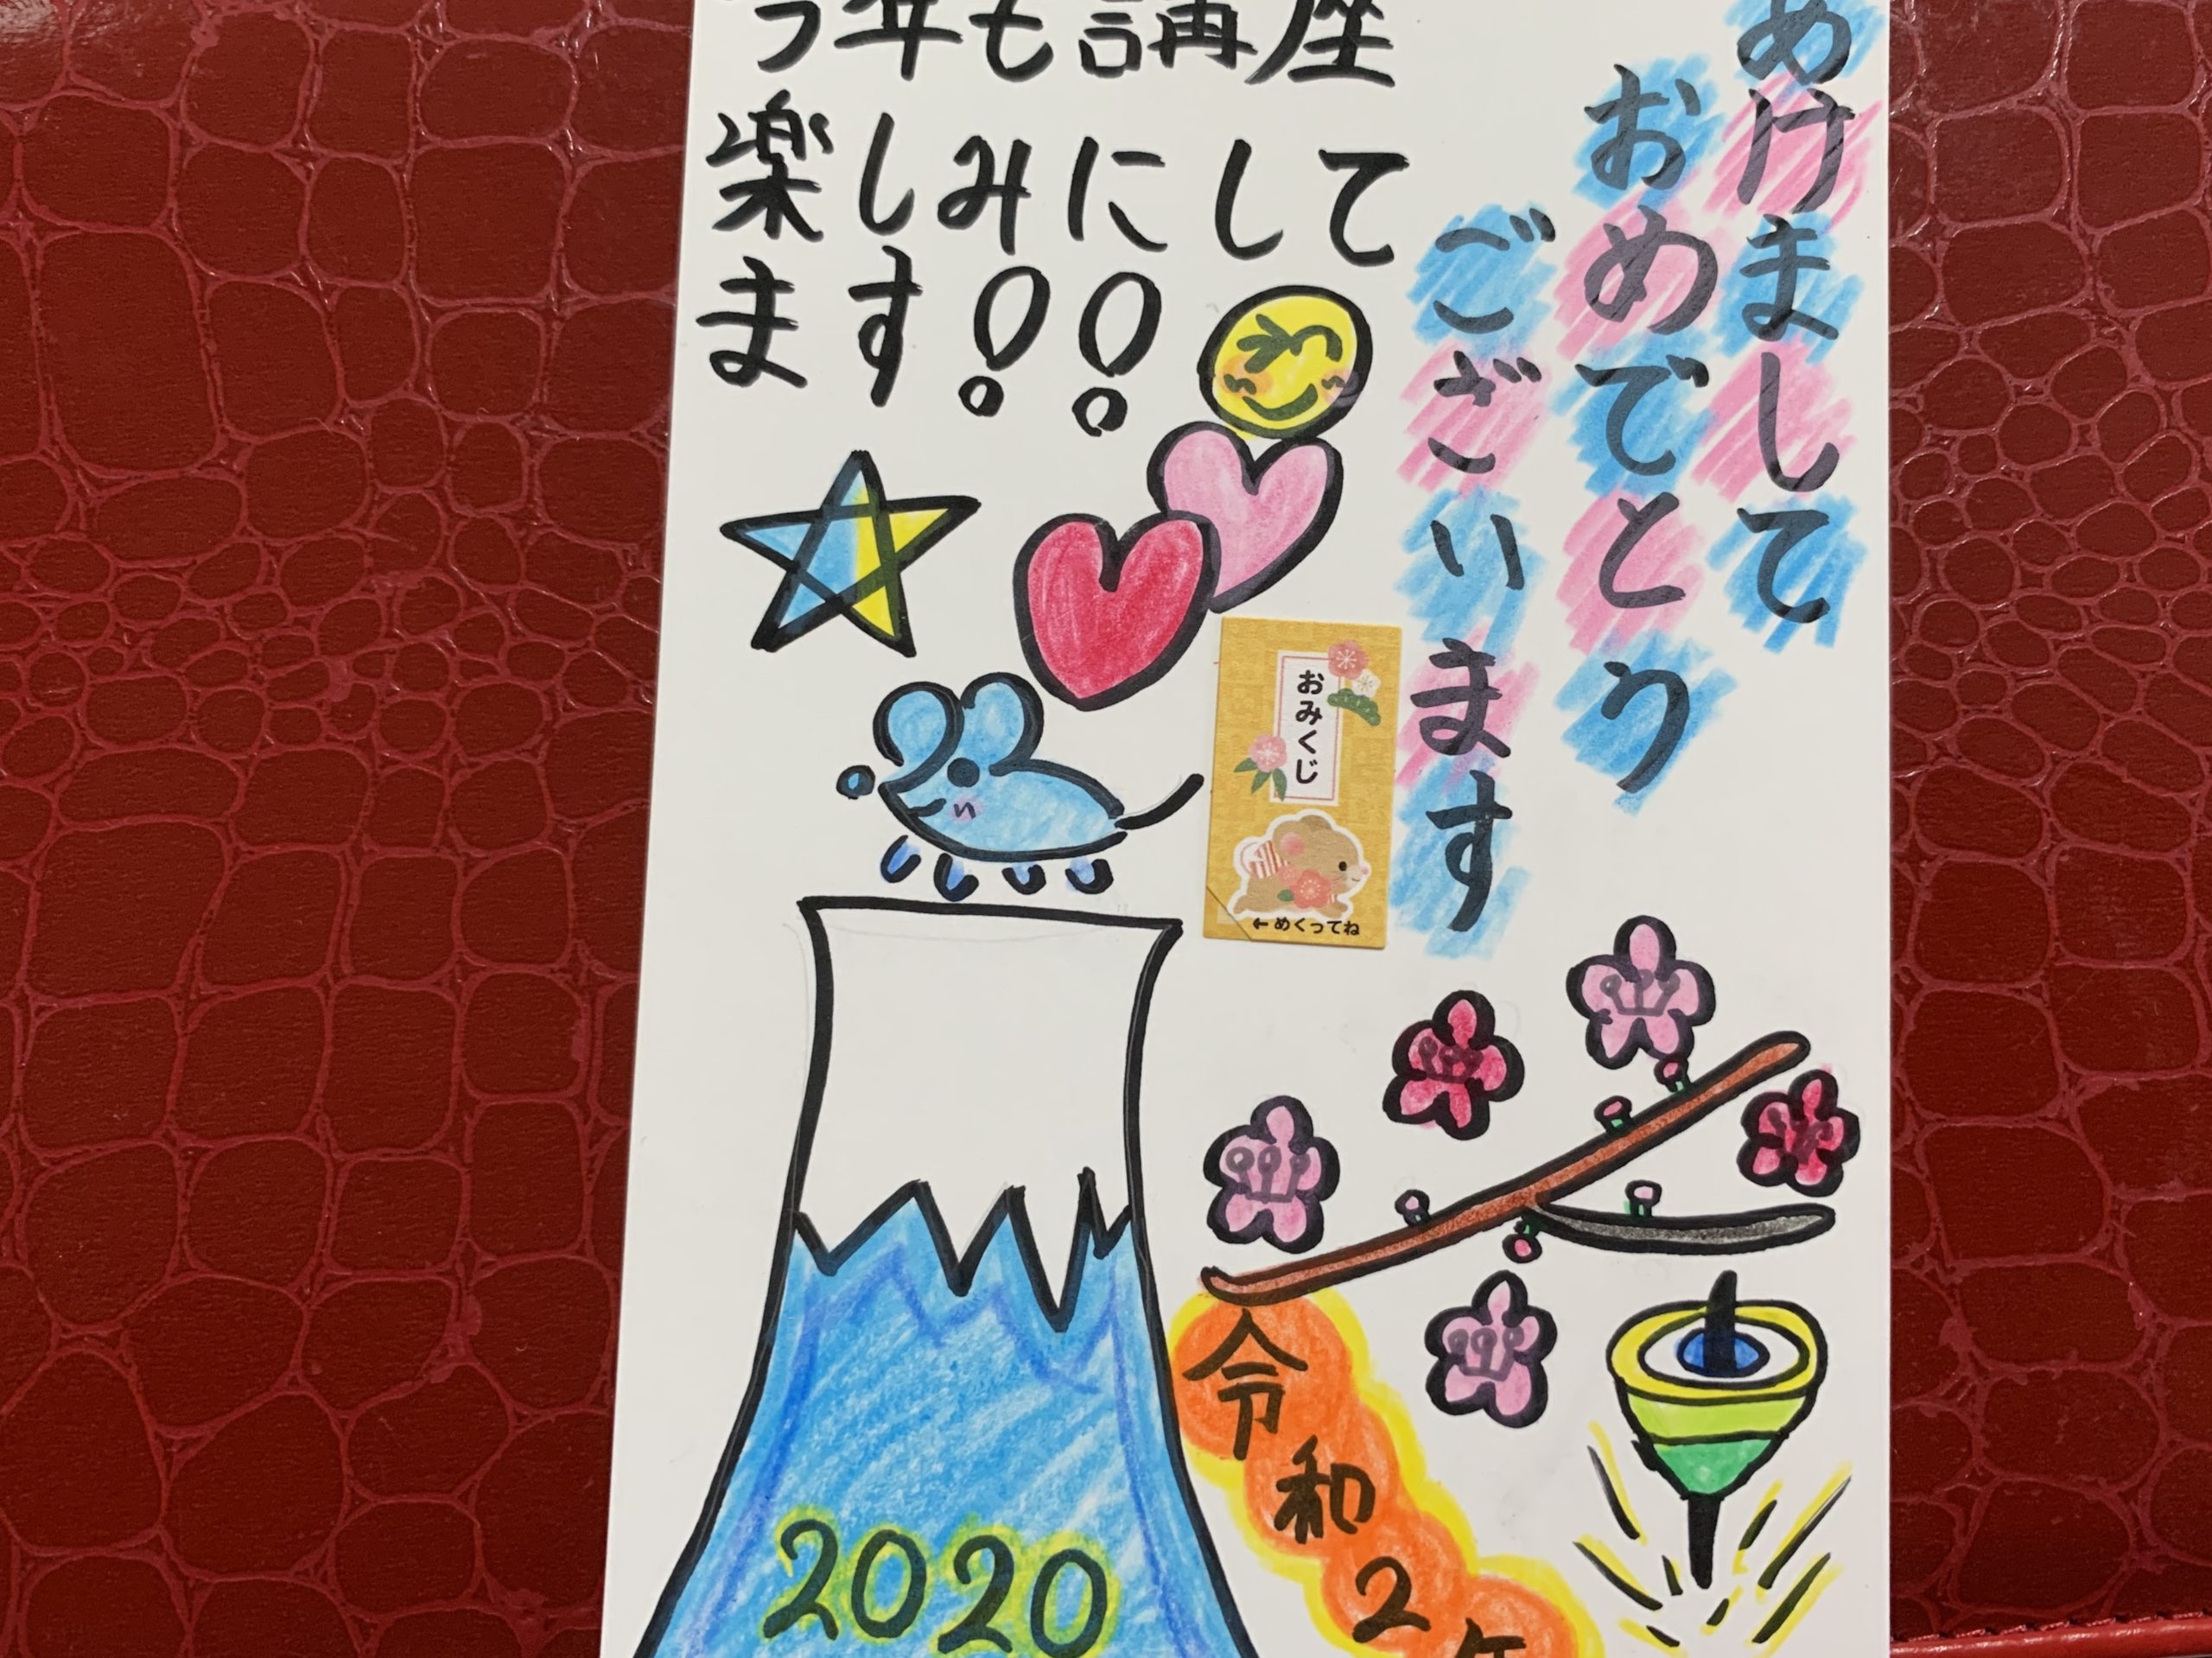 あけまして
おめでとう
ございます
今年も講座
楽しみにして
ます!!
おみくじ
←めくってね
令和2年
2020